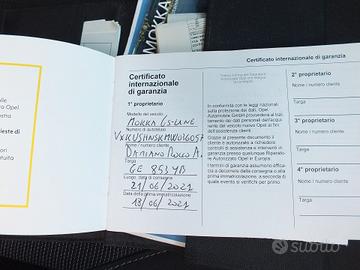 MOKKA
Certificato internazionale di garanzia
Certificato
internazionale
di garanzia
1° proprietario
Modello del veicolo
MOKKA GS-LINE
Numero di autotelaio
Nome / numero cliente
DAMIANO ROCCO A.
Targa
GE 853 YB
Luogo, data di consegna
21/06/2021
Data della prima immatricolazione
18/06/2021
In conformità con le leggi nazionali
sulla protezione dei dati, Opel
Automobile GmbH provvederà al trat-
tamento dei dati personali dell'acqui-
rente del veicolo nuovo Opel ai fini
dell'assistenza clienti.
Grazie al presente documento il
cliente è autorizzato a richiedere
controlli di assistenza e interventi in
garanzia presso qualunque Riparato-
re Autorizzato Opel in Europa.
Il termine di garanzia assume effica-
cia a decorrere dalla consegna o alla
prima immatricolazione, a seconda di
quale evento si verifichi per primo.
2° proprietario
Nome / numero cliente
Targa
3° proprietario
Nome / numero cliente
Targa
4° proprietario
Nome / numero cliente
Targa
subito